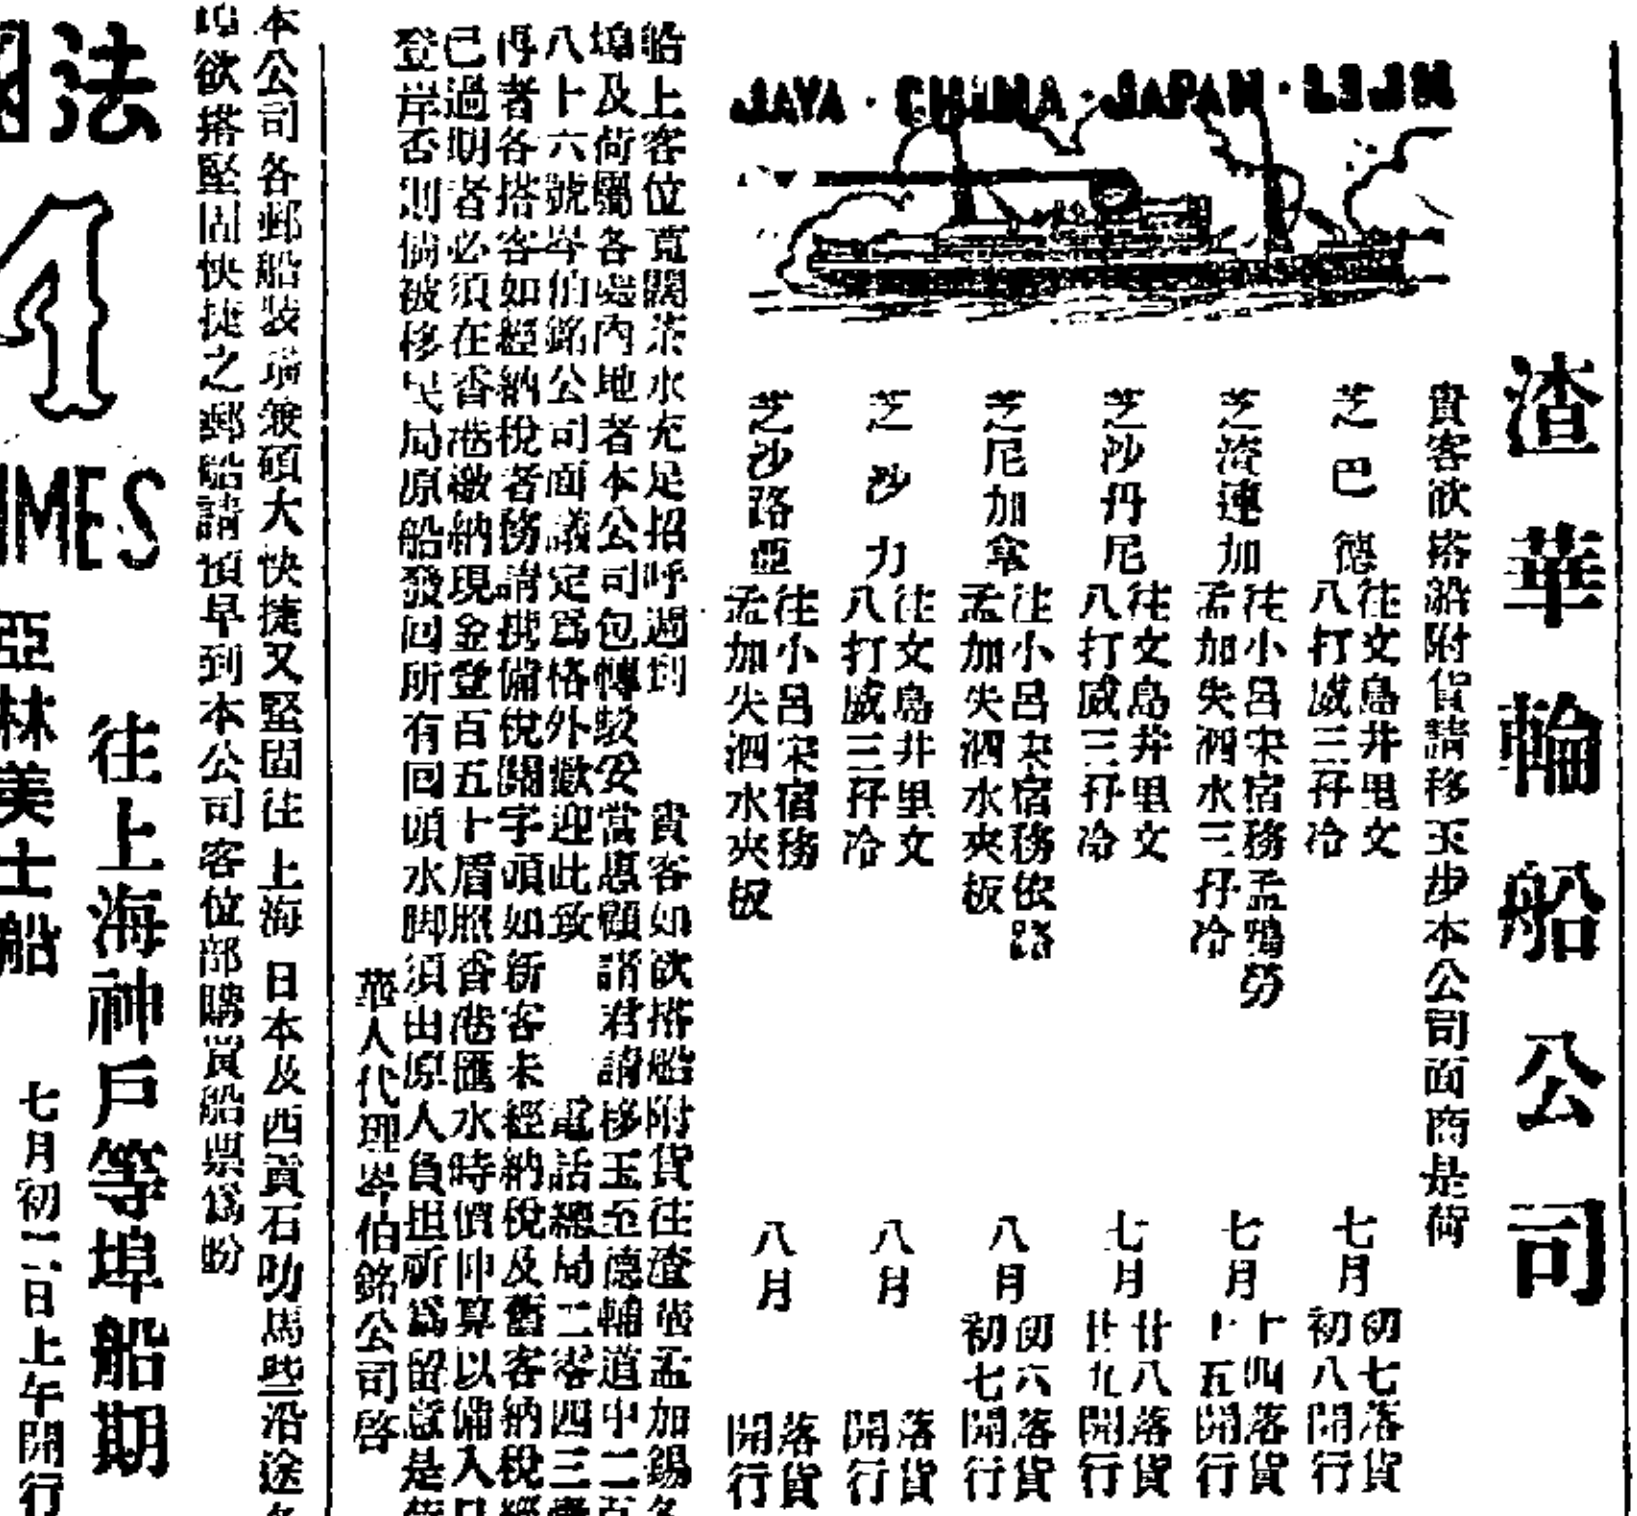 JAVA · CHINA · JAPAN · LIJN
渣華輪船公司
貴客欲搭船附貨請移玉步本公司面商是荷
芝巴德 往文島井里文 八打威三孖冷 七月 初七落貨 初八開行
芝渣連加 往小呂宋宿務孟鴨勞 孟加失泗水三孖冷 七月 十四落貨 十五開行
芝沙丹尼 往文島井里文 八打威三孖冷 七月 廿八落貨 廿九開行
芝尼加拿 往小呂宋宿務依路 孟加失泗水夾板 八月 初六落貨 初七開行
芝沙力 往文島井里文 八打威三孖冷 八月 落貨 開行
芝沙路亞 往小呂宋宿務 孟加失泗水夾板 八月 落貨 開行
船上客位寬闊茶水充足招呼週到 貴客如欲搭船附貨往渣華孟加錫各
埠及荷屬各處內地者本公司包轉駁妥當惠顧諸君請移玉至德輔道中二百
八十六號岑伯銘公司面議定爲格外歡迎此致 電話總局二零四三
再者各搭客如經納稅者務請携備稅關字頭如新客未經納稅及舊客納稅經
已過期者必須在香港繳納現金登百五十盾照香港匯水時價伸算以備入口
登岸否則倘被移民局原船發回所有回頭水脚須由原人負担祈爲留意是荷
華人代理岑伯銘公司啓
本公司各郵船裝璜兼碩大快捷又堅固往 上海 日本及西貢石叻馬些沿途各
埠欲搭堅固快捷之郵船請預早到本公司客位部購買船票爲盼
法國
4
IMES
往上海神戶等埠船期
亞林美士船 七月初二日上午開行